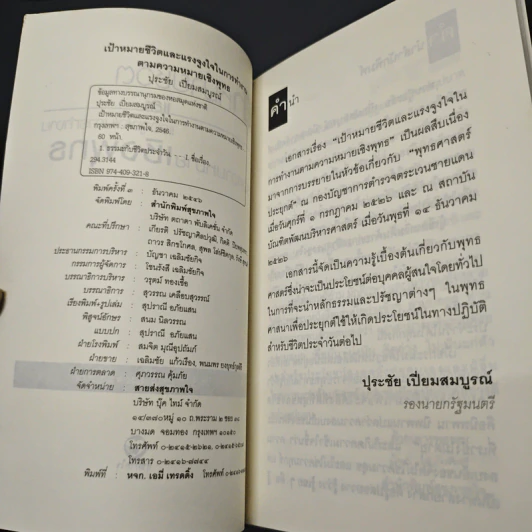 เป้าหมายชีวิตและแรงจูงใจในการทำงาน
ตามความหมายเชิงพุทธ
ปุระชัย เปี่ยมสมบูรณ์
ข้อมูลทางบรรณานุกรมของหอสมุดแห่งชาติ
ปุระชัย เปี่ยมสมบูรณ์
เป้าหมายชีวิตและแรงจูงใจในการทำงานตามความหมายเชิงพุทธ.
กรุงเทพฯ : สุขภาพใจ, 2546.
60 หน้า.
1. ธรรมะกับชีวิตประจำวัน I. ชื่อเรื่อง
294.3144
ISBN 974-409-321-8
พิมพ์ครั้งที่ ๓ : ธันวาคม ๒๕๔๖
จัดพิมพ์โดย : สำนักพิมพ์สุขภาพใจ
บริษัท ตถาตา พับลิเคชั่น จำกัด
คณะที่ปรึกษา : เกียรติ ปรัชญาศิลปวุฒิ, กิตติ
ถาวร สิกขโกศล, สุพล
ประธานกรรมการบริหาร : บัญชา เฉลิมชัยกิจ
กรรมการผู้จัดการ : โชนรังสี เฉลิมชัยกิจ
บรรณาธิการบริหาร : วรุตม์ ทองเชื้อ
บรรณาธิการ : สุวรรณ เคลือบสุวรรณ์
เรียงพิมพ์-รูปเล่ม : สุปราณี อภัยแสน
พิสูจน์อักษร : สนม นิลวรรณ
แบบปก : สุปราณี อภัยแสน
ฝ่ายโรงพิมพ์ : สมจิต มุณีอุปถัมภ์
ฝ่ายขาย : เฉลิมชัย แก้วเรือง, พนมพร
ฝ่ายการตลาด : ศุภวรรณ คุ้มภัย
จัดจำหน่าย : สายส่งสุขภาพใจ
บริษัท บุ๊ค ไทม์ จำกัด
๑๔/๓๘๐หมู่ ๑๐ ถ.พระราม ๒ ซอย
บางมด จอมทอง กรุงเทพฯ
โทรศัพท์
โทรสาร ๐-๒๔๑๖-๗๗๔๔
พิมพ์ที่ : หจก. เอมี่ เทรดดิ้ง
คำนำ
เอกสารเรื่อง “เป้าหมายชีวิตและแรงจูงใจใน
การทำงานตามความหมายเชิงพุทธ” เป็นผลสืบเนื่อง
มาจากการบรรยายในหัวข้อเกี่ยวกับ “พุทธศาสตร์
ประยุกต์” ณ กองบัญชาการตำรวจตระเวนชายแดน
เมื่อวันศุกร์ที่ ๑ กรกฎาคม ๒๕๒๖ และ ณ สถาบัน
บัณฑิตพัฒนบริหารศาสตร์ เมื่อวันพุธที่ ๑๔ ธันวาคม
๒๕๒๖
เอกสารนี้จัดเป็นความรู้เบื้องต้นเกี่ยวกับพุทธ
ศาสตร์ซึ่งน่าจะเป็นประโยชน์ต่อบุคคลผู้สนใจโดยทั่วไป
ในการที่จะนำหลักธรรมและปรัชญาต่างๆ ในพุทธ
ศาสนาเพื่อประยุกต์ใช้ให้เกิดประโยชน์ในทางปฏิบัติ
สำหรับชีวิตประจำวันต่อไป
ปุระชัย เปี่ยมสมบูรณ์
รองนายกรัฐมนตรี